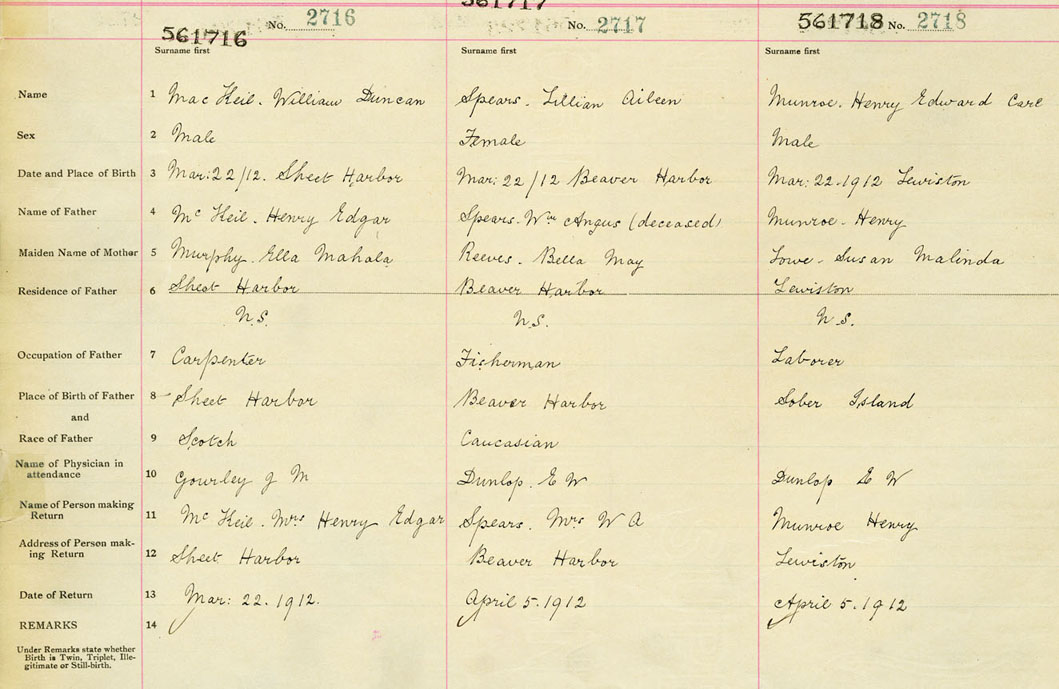 561717
No. 2716 No. 2717 561718 No. 2718
561716
Surname first Surname first Surname first
Name 1 Mac Keil. William Duncan Spears. Lillian Aileen Munroe. Henry Edward Carl
Sex 2 Male Female Male
Date and Place of Birth 3 Mar: 22/12. Sheet Harbor Mar: 22/12 Beaver Harbor Mar: 22.1912 Lewiston
Name of Father 4 Mc Keil. Henry Edgar Spears. Wm Angus (deceased) Munroe. Henry
Maiden Name of Mother 5 Murphy. Ella Mahala Reeves. Bella May Lowe. Susan Malinda
Residence of Father 6 Sheet Harbor Beaver Harbor Lewiston
N.S. N.S. N.S.
Occupation of Father 7 Carpenter Fisherman Laborer
Place of Birth of Father 8 Sheet Harbor Beaver Harbor Sober Island
and
Race of Father 9 Scotch Caucasian
Name of Physician in
attendance 10 Gourley J M Dunlop. E W Dunlop E W
Name of Person making
Return 11 Mc Keil. Mrs Henry Edgar Spears. Mrs W A Munroe Henry
Address of Person mak-
ing Return 12 Sheet Harbor Beaver Harbor Lewiston
Date of Return 13 Mar: 22. 1912. April 5. 1912 April 5. 1912
REMARKS 14
Under Remarks state whether
Birth is Twin, Triplet, Ille-
gitimate or Still-birth.